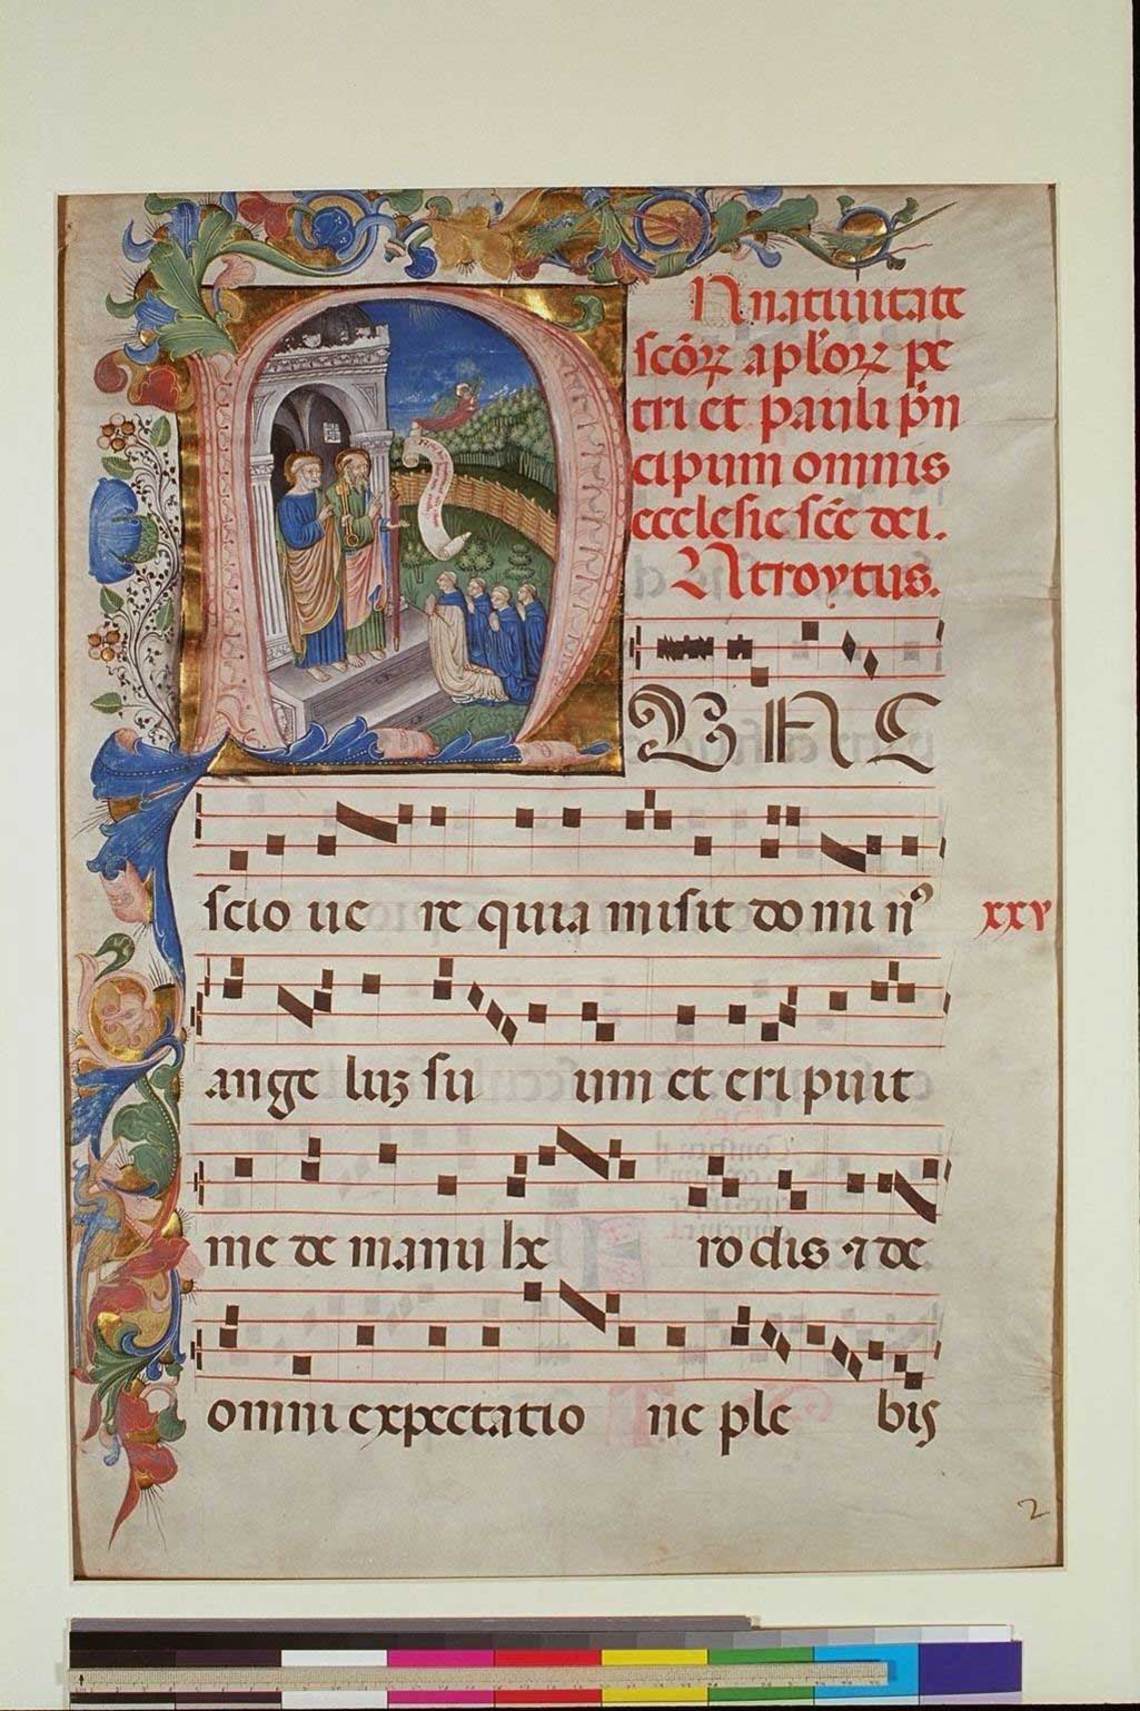 In natiuitate
scōꝝ apl'oꝝ pe
tri et pauli pn̄
cipum omnis
ecclesie scē dei.
Introytus.
N VNC
scio ue re quia misit do mi nꝰ
xxv
ange luʒ su um et eri puit
me de manu he ro dis ⁊ de
omni expectatio ne ple bis
2